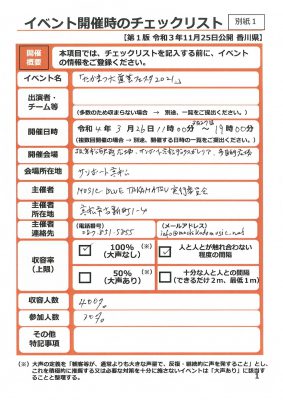 イベント開催時のチェックリスト
別紙１
【第１版 令和３年11月25日公開 香川県】
開催概要
本項目では、チェックリストを記入する前に、イベントの情報をご登録ください。
イベント名
出演者・チーム等
(多数のため収まらない場合 → 別途、一覧をご提出ください。)
開催日時
令和４年３月26日11時00分～19時00分
(複数回開催の場合 → 別途、開催する日時の一覧をご提出ください。)
開催会場
会場所在地
サンポート高松
主催者
MUSIC BLUE TAKAMATSU 実行委員会
主催者所在地
主催者連絡先
(電話番号)
(メールアドレス)
収容率(上限)
✓
100%(※)
(大声なし)
✓
人と人とが触れ合わない程度の間隔
50%(※)
(大声あり)
十分な人と人との間隔
(できるだけ２ｍ、最低１ｍ)
収容人数
参加人数
その他特記事項
(※) 大声の定義を「観客等が、通常よりも大きな声量で、反復・継続的に声を発すること」とし、
これを積極的に推奨する又は必要な対策を十分に施さないイベントは「大声あり」に該当す
ることと整理する。
1